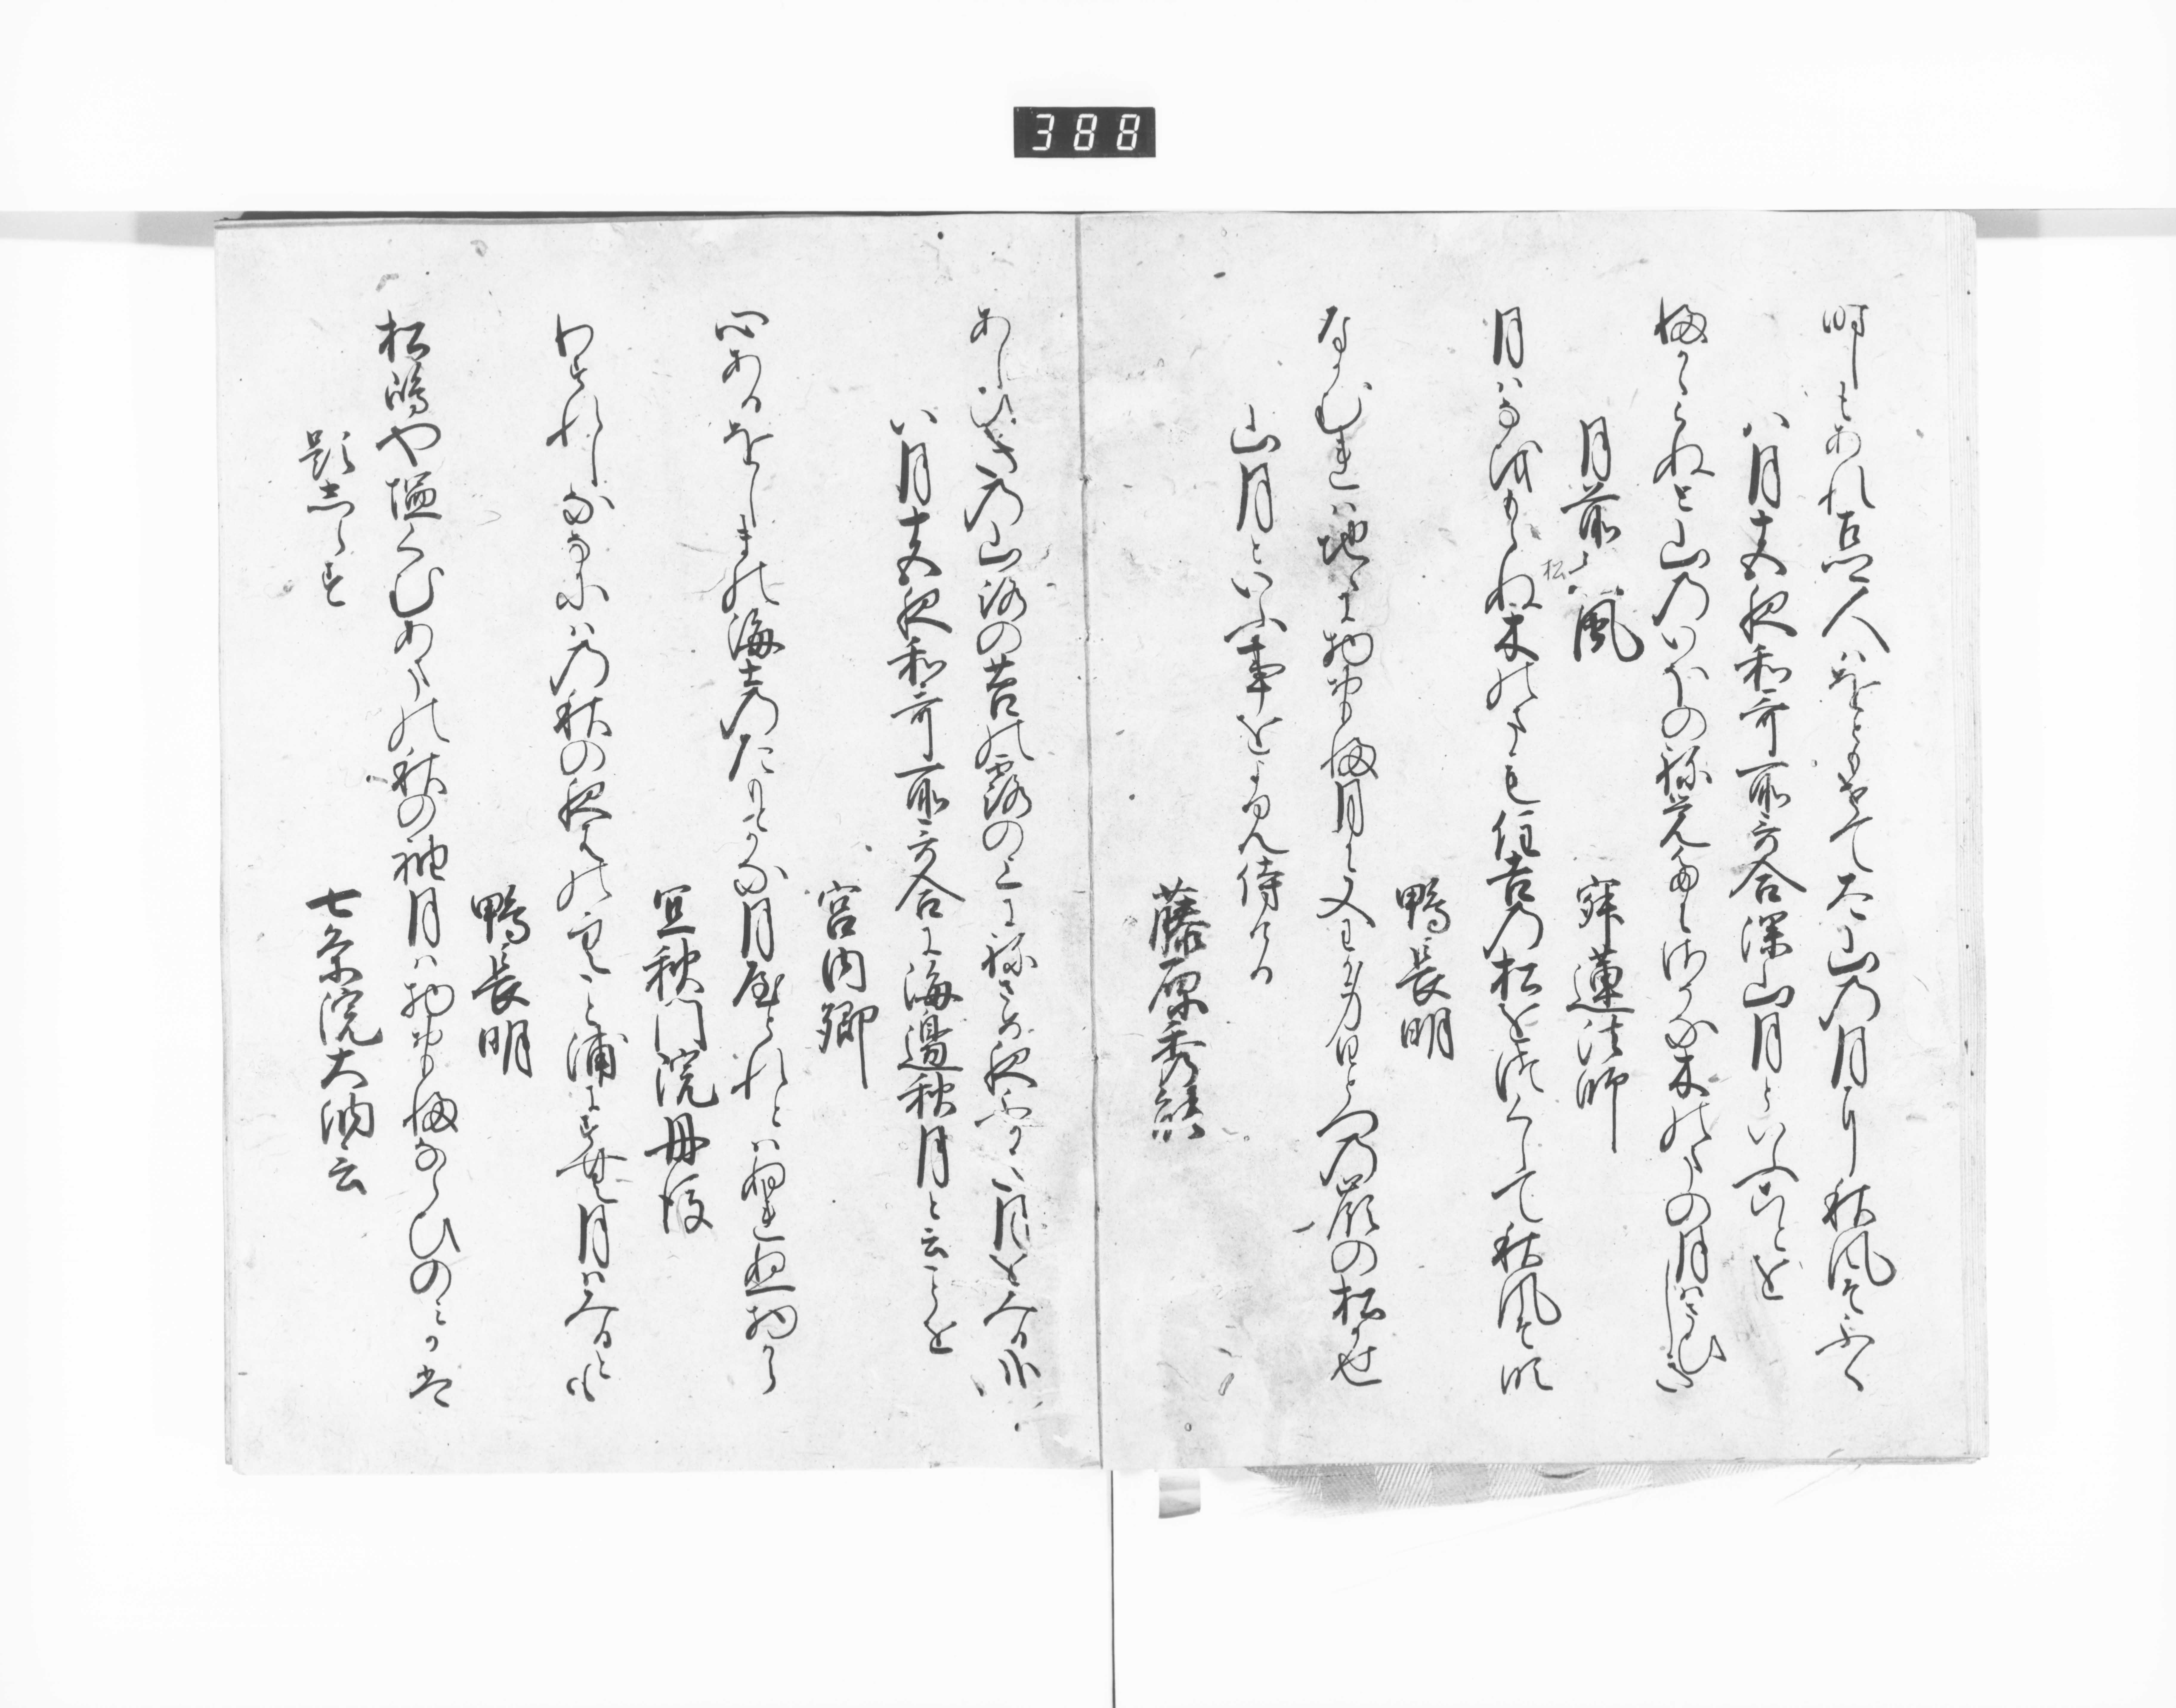 388
時しもあれ古郷人はをともせてみ山の月に秋風そふく
八月十五夜和哥所哥合深山月といふことを
ふかゝらぬと山のいほのねさめたにさそな木のまの月はさひしき
月前松風
寂蓮法師
月はなをもらぬ木のまも住吉の松をつくして秋風そ吹
鴨長明
なかむれは地ゝに物おもふ月に又わか身ひとつの嶺の松かせ
山月といふ事をよみ侍ける
藤原秀能
あしひきの山路の苔の露のうへにねさめ夜ふかき月をみる哉
八月十五夜和哥所哥合に海邊秋月と云ことを
宮内卿
心あるをしまの海士のたもとかな月やとれとはぬれぬ物から
宜秋門院丹後
わすれしななにはの秋の夜はの空こと浦にすむ月はみるとも
鴨長明
松嶋や塩くむあまの秋の袖月は物おもふならひのみかは
題しらす
七条院大納言